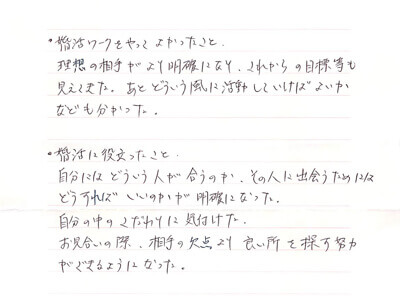 ・婚活ワークをやってよかったこと.
理想の相手がより明確になり、これからの目標等も
見えてきた。あとどういう風に活動していけばよいか
なども分かった.
・婚活に役立ったこと.
自分にはどういう人が合うのか、その人に出会うためには
どうすればいいのかが明確になった。
自分の中のこだわりに気付けた.
お見合いの際、相手の欠点より良い所を探す努力
ができるようになった。